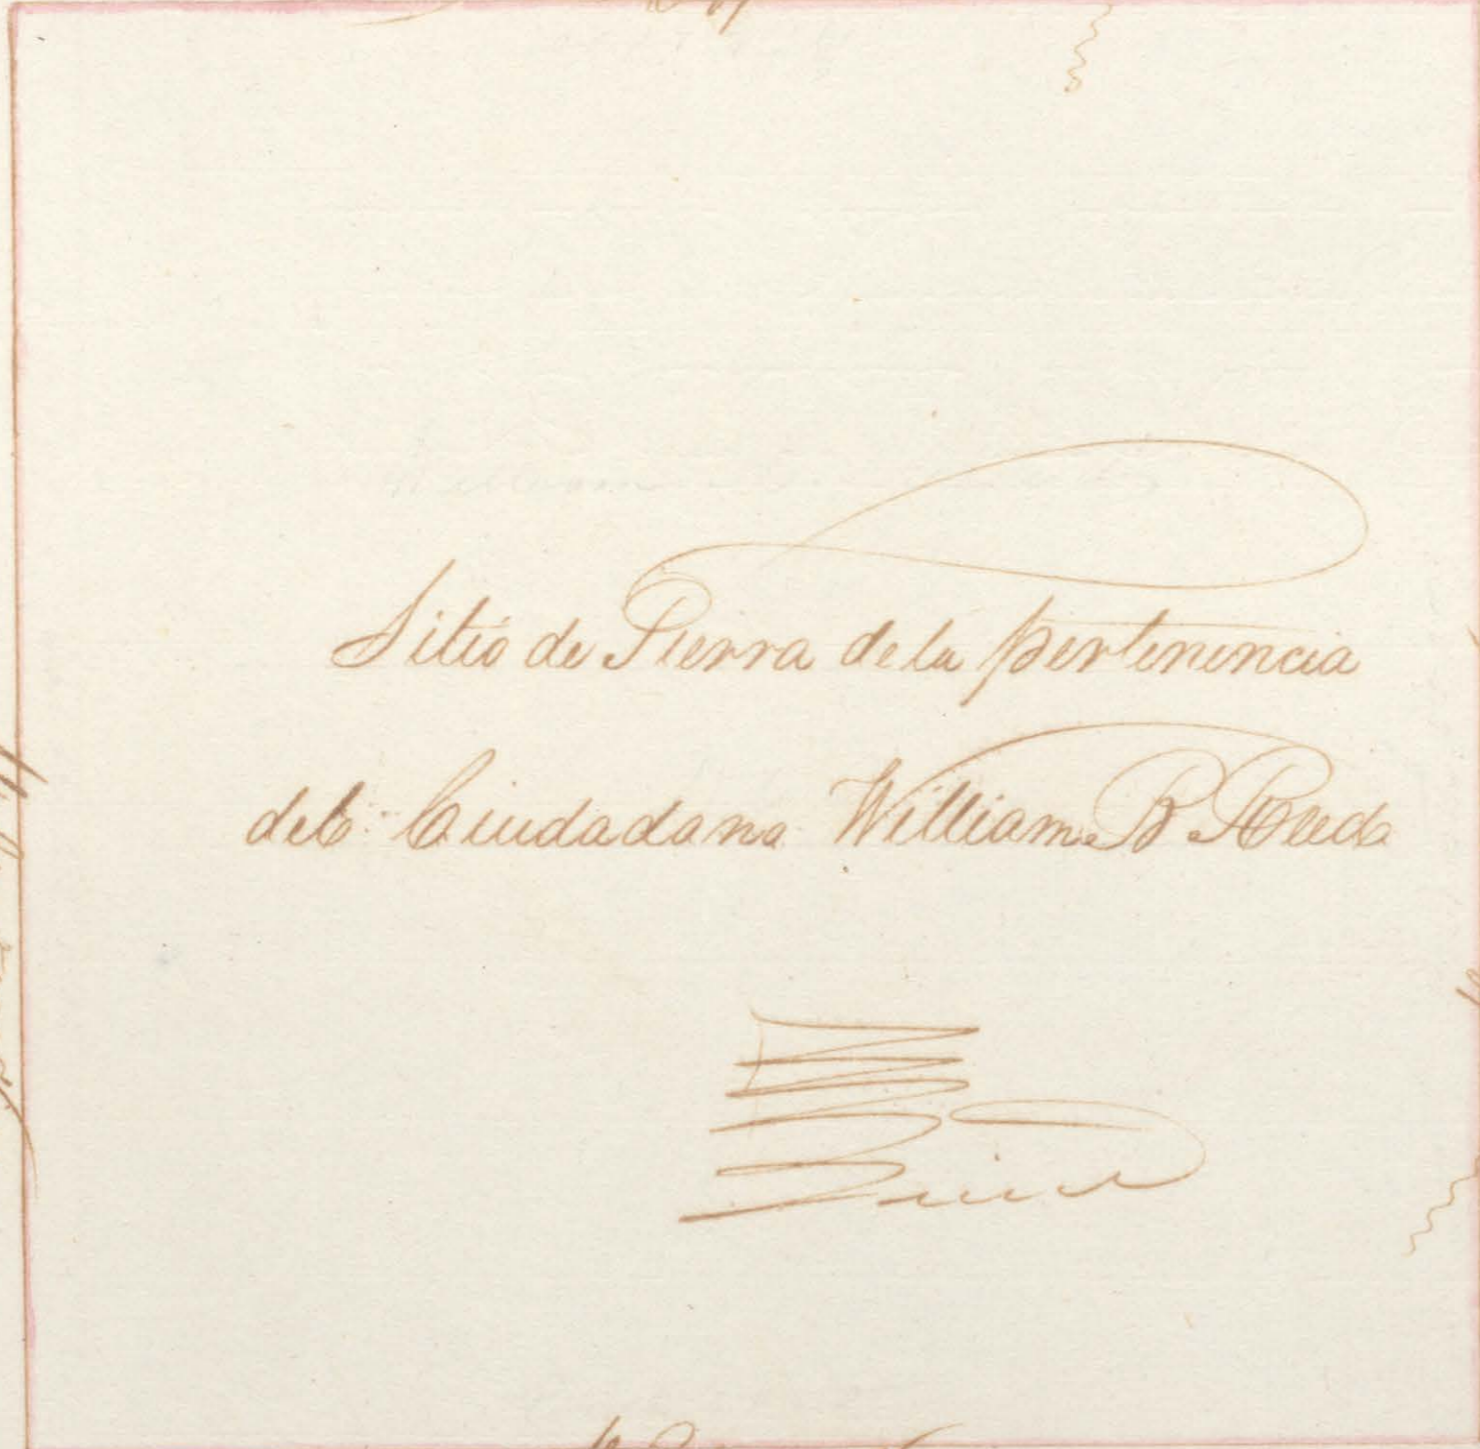 Sitio de Tierra de la pertenencia
del Ciudadano William B Reed